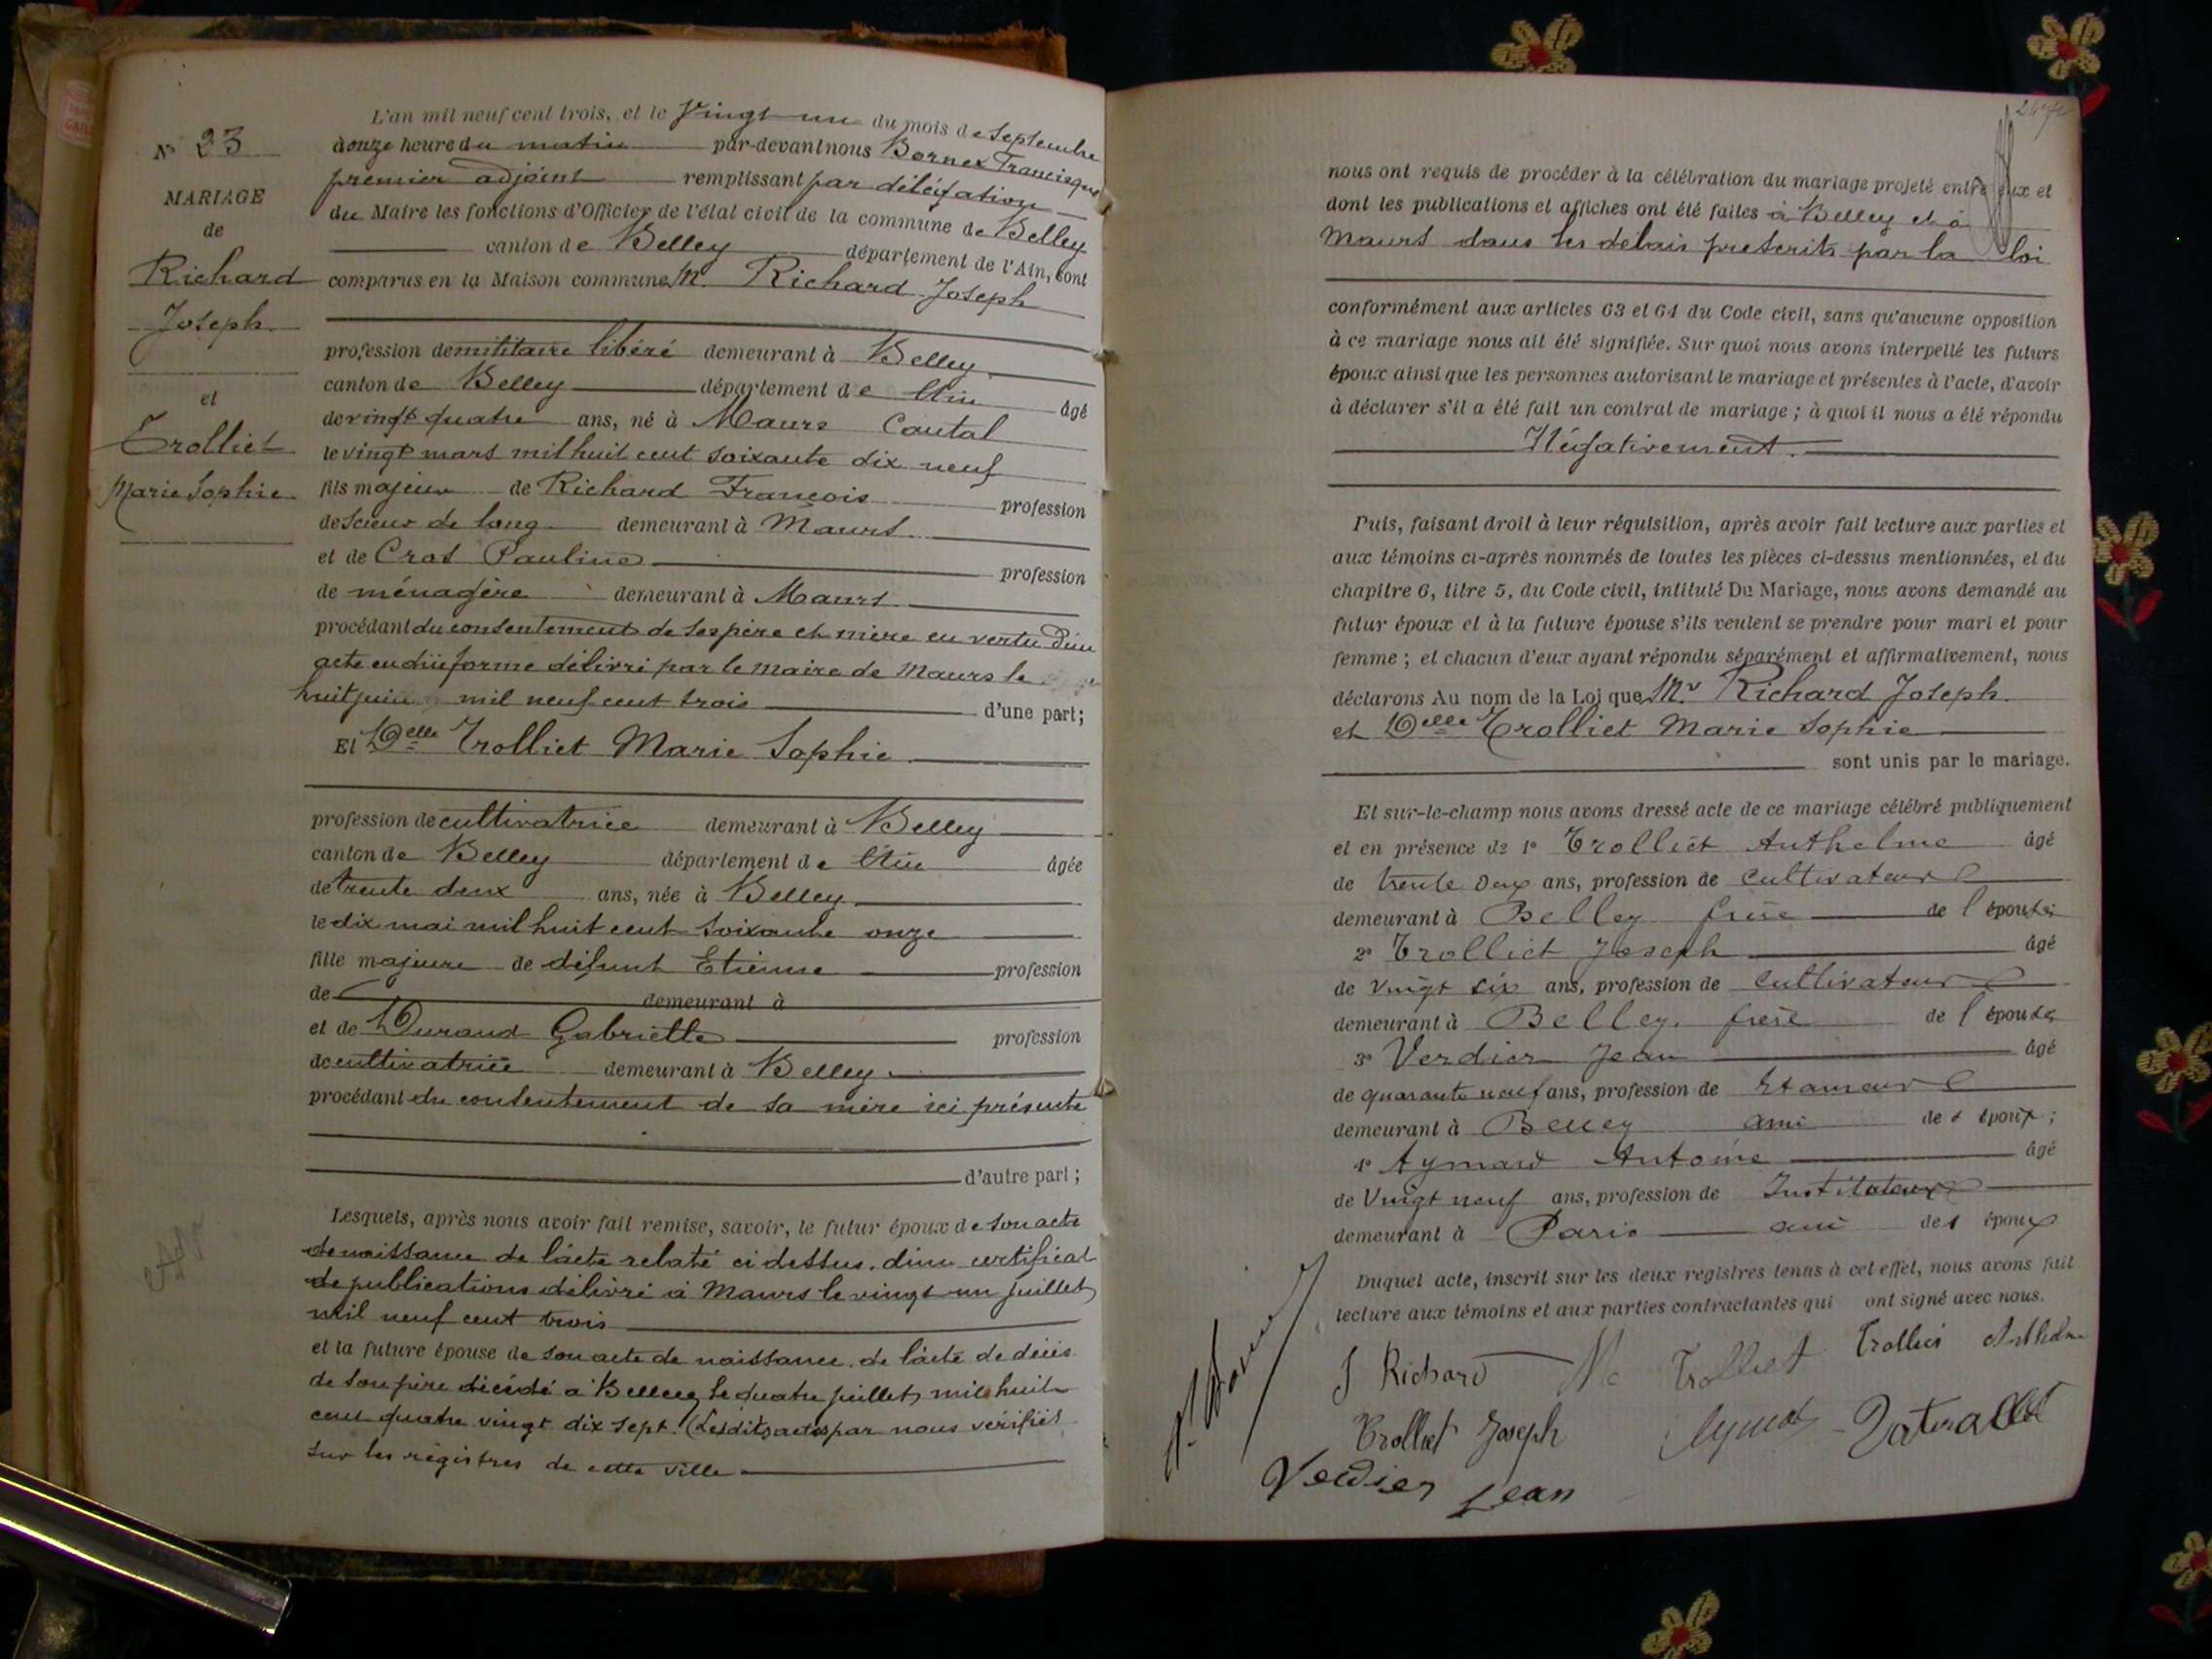 N° 23
MARIAGE
de
Richard
Joseph
et
Trolliet
Marie Sophie
L'an mil neuf cent trois, et le Vingt un du mois de Septembre
à onze heure du matin par-devant nous Bornex Francisque
premier adjoint remplissant par délégation
du Maire les fonctions d'Officier de l'état civil de la commune de Belley
canton de Belley département de l'Ain, sont
comparus en la Maison commune M. Richard Joseph
profession de militaire libéré demeurant à Belley
canton de Belley département de l'Ain âgé
de vingt quatre ans, né à Maurs Cantal
le vingt mars mil huit cent soixante dix neuf
fils majeur de Richard François profession
de scieur de long demeurant à Maurs
et de Cros Pauline profession
de ménagère demeurant à Maurs
procédant du consentement de ses père et mère en vertu d'un
acte en due forme délivré par le maire de Maurs le
huit juin mil neuf cent trois d'une part;
Et Delle Trolliet Marie Sophie
profession de cultivatrice demeurant à Belley
canton de Belley département de l'Ain âgée
de trente deux ans, née à Belley
le dix mai mil huit cent soixante onze
fille majeure de défunt Etienne profession
de demeurant à
et de Durand Gabrielle profession
de cultivatrice demeurant à Belley
procédant du consentement de sa mère ici présente
d'autre part;
Lesquels, après nous avoir fait remise, savoir, le futur époux de son acte
de naissance de l'acte relaté ci dessus, d'un certificat
de publications délivré à Maurs le vingt un juillet
mil neuf cent trois
et la future épouse de son acte de naissance, de l'acte de décès
de son père décédé à Belley le quatre juillet mil huit
cent quatre vingt dix sept. (Lesdits actes par nous vérifiés
sur les régistres de cette ville
nous ont requis de procéder à la célébration du mariage projeté entre eux et
dont les publications et affiches ont été faites à Belley et à
Maurs dans les délais prescrits par la loi
conformément aux articles 63 et 64 du Code civil, sans qu'aucune opposition
à ce mariage nous ait été signifiée. Sur quoi nous avons interpellé les futurs
époux ainsi que les personnes autorisant le mariage et présentes à l'acte, d'avoir
à déclarer s'il a été fait un contrat de mariage; à quoi il nous a été répondu
Négativement.
Puis, faisant droit à leur réquisition, après avoir fait lecture aux parties et
aux témoins ci-après nommés de toutes les pièces ci-dessus mentionnées, et du
chapitre 6, titre 5, du Code civil, intitulé Du Mariage, nous avons demandé au
futur époux et à la future épouse s'ils veulent se prendre pour mari et pour
femme; et chacun d'eux ayant répondu séparément et affirmativement, nous
déclarons Au nom de la Loi que Mr Richard Joseph
et Delle Trolliet Marie Sophie
sont unis par le mariage.
Et sur-le-champ nous avons dressé acte de ce mariage célébré publiquement
et en présence de 1° Trolliet Anthelme âgé
de trente deux ans, profession de cultivateur
demeurant à Belley frère de l'épouse;
2° Trolliet Joseph âgé
de vingt six ans, profession de cultivateur
demeurant à Belley, frère de l'épouse
3° Verdier Jean âgé
de quarante neuf ans, profession de Etameur
demeurant à Belley ami de l'époux;
4° Aymard Antoine âgé
de Vingt neuf ans, profession de Instituteur
demeurant à Paris ami de l'époux
Duquel acte, inscrit sur les deux registres tenus à cet effet, nous avons fait
lecture aux témoins et aux parties contractantes qui ont signé avec nous.
J Richard M Trolliet Trolliet Anthelme
Trolliet Joseph
Verdier Jean